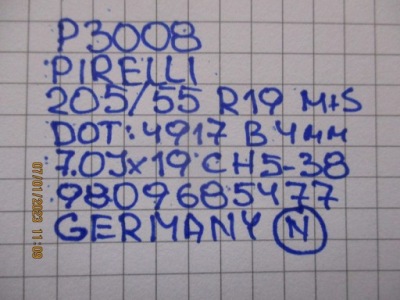 P3008
PIRELLI
205/55 R19 M+S
DOT: 4917 B 4мм
7.0Jx19 CH5-38
9809685477
GERMANY N
07/01/2023 11:09